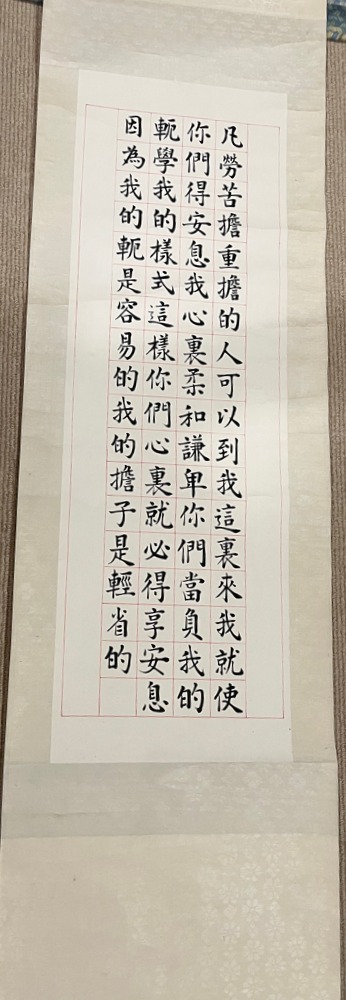 凡勞苦擔重擔的人可以到我這裏來我就使
你們得安息我心裏柔和謙卑你們當負我的
軛學我的樣式這樣你們心裏就必得享安息
因為我的軛是容易的我的擔子是輕省的